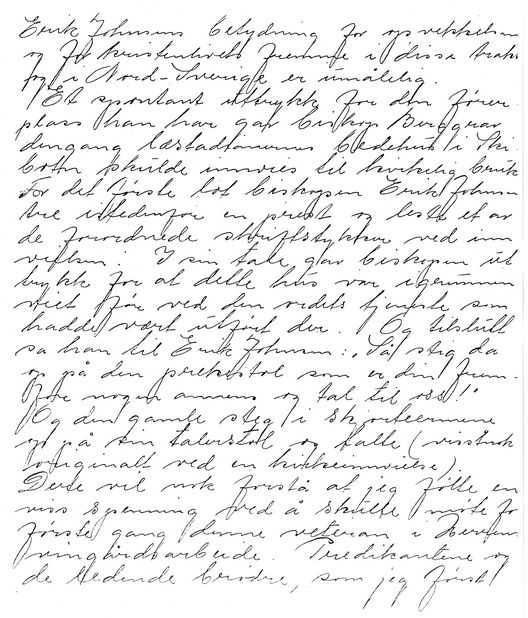 Erik Johnsens betydning for opvekkelsen
og for kristenlivets fremme i disse trakt
og i Nord-Sverige er umålelig.
Et spontant uttrykk for den fører
plass han har gav biskop Berggrav
dengang læstadianernes bedehus i Ski
botn skulde innvies til kirkelig bruk
For det første lot biskopen Erik Johns
tre istedenfor en prest og leste et av
de forordnede skriftstykker ved inn
vielsen. I sin tale gav biskopen ut
trykk for at dette hus var igrunnen
viet før ved den ordets tjeneste som
hadde vært utført der. Og tilslutt
sa han til Erik Johnsen: "Så stig da
op på den prekestol som er din frem-
for nogen annens og tal til oss!"
Og den gamle steg i skjorteermene
op på sin talerstol og talte (visstnok
originalt ved en kirkeinnvielse).
Dere vil nok forstå at jeg følte en
viss spenning ved å skulle møte for
første gang denne veteran i Herrens
vingårdsarbeide. Predikantene og
de ledende brødre, som jeg først